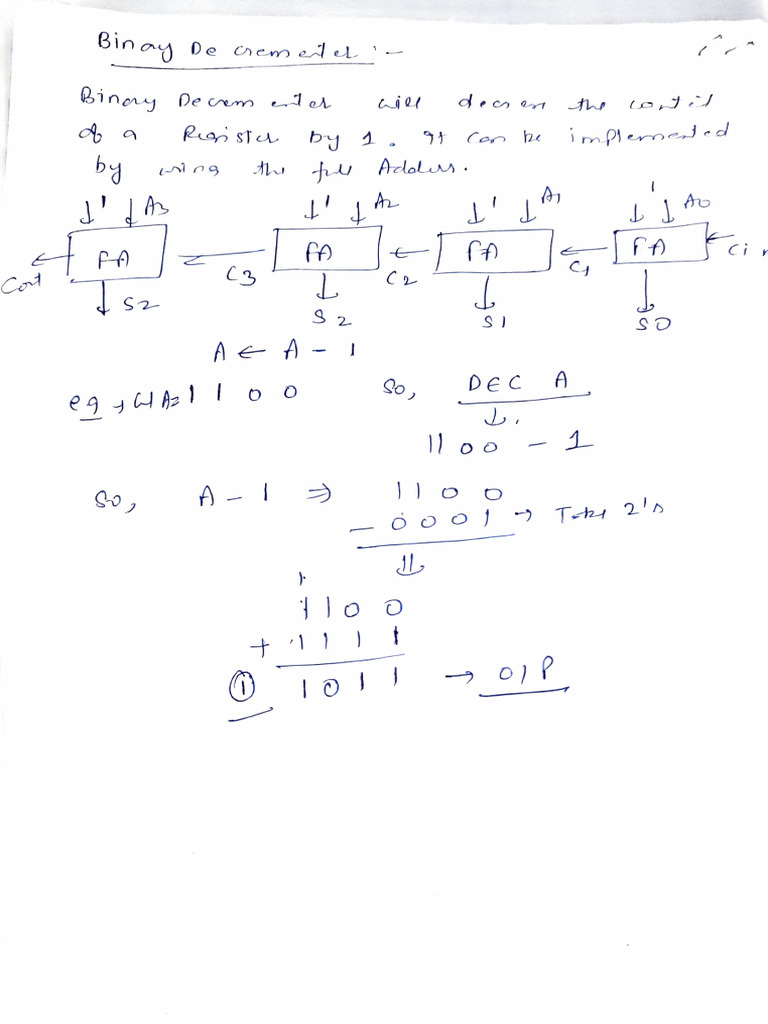 Binary Decrementer :-
Binary Decrementer will decrem the content
of a Register by 1. It can be implemented
by using the full Adders.
1 A3 1 A2 1 A1 1 A0
FA FA FA FA
Cout C3 C2 C1 Cin
S2 S2 S1 S0
A ← A - 1
eg → A = 1 1 0 0 So, DEC A
↓
1100 - 1
So, A - 1 ⇒ 1 1 0 0
- 0 0 0 1 → Take 2's
⇓
1
1 1 0 0
+ 1 1 1 1
① 1 0 1 1 → O/P